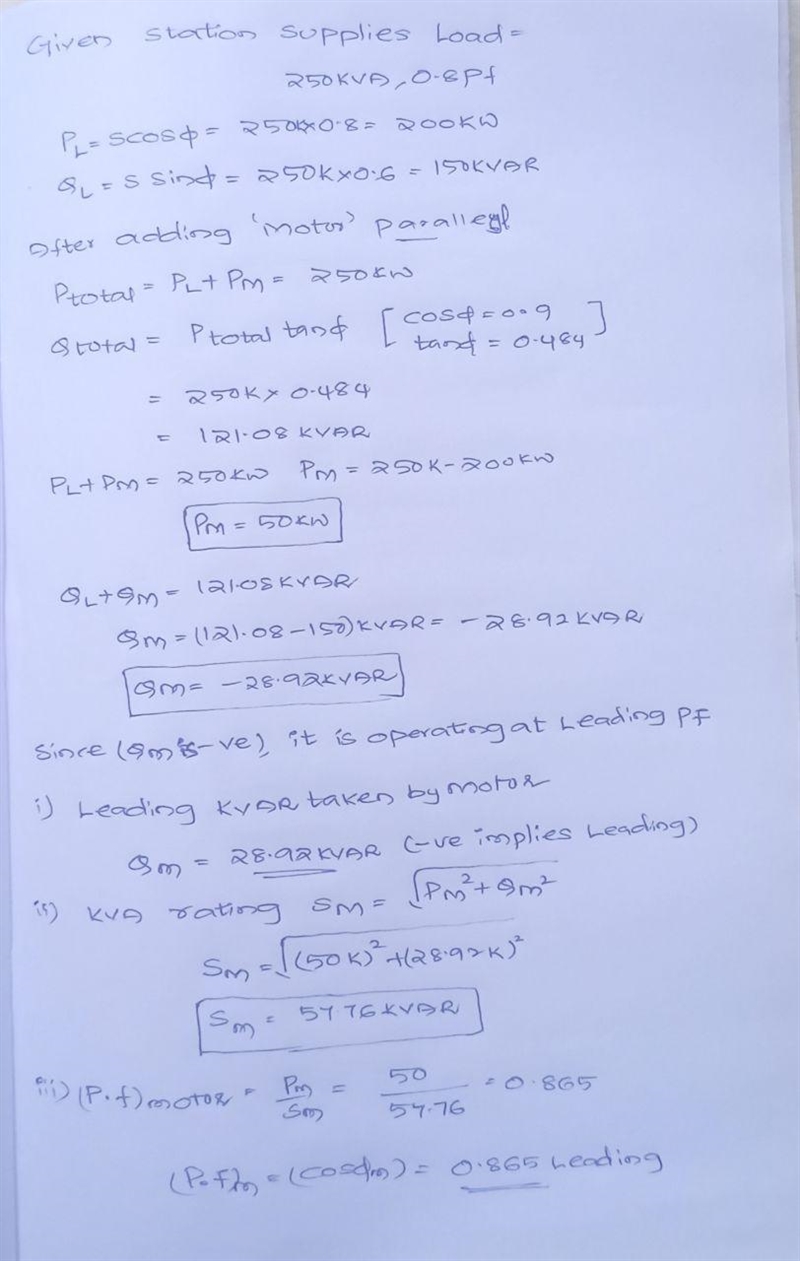 Given station supplies Load =
250KVA, 0.8Pf
P_L = scosϕ = 250K×0.8 = 200KW
Q_L = s sinϕ = 250K×0.6 = 150KVAR
After adding 'motor' parallel
Ptotal = P_L + Pm = 250KW
Qtotal = Ptotal tanϕ [cosϕ = 0.9
tanϕ = 0.484]
= 250K × 0.484
= 121.08 KVAR
P_L + Pm = 250KW Pm = 250K-200KW
Pm = 50KW
Q_L + Qm = 121.08KVAR
Qm = (121.08-150)KVAR = -28.92KVAR
Qm = -28.92KVAR
Since (Qm is -ve), it is operating at Leading PF
i) Leading KVAR taken by motor
Qm = 28.92KVAR (-ve implies Leading)
ii) KVA rating Sm = √Pm² + Qm²
Sm = √(50K)² + (28.92K)²
Sm = 57.76KVAR
iii) (P.f)motor = Pm/Sm = 50/57.76 = 0.865
(P.f)m = (cosϕm) = 0.865 Leading